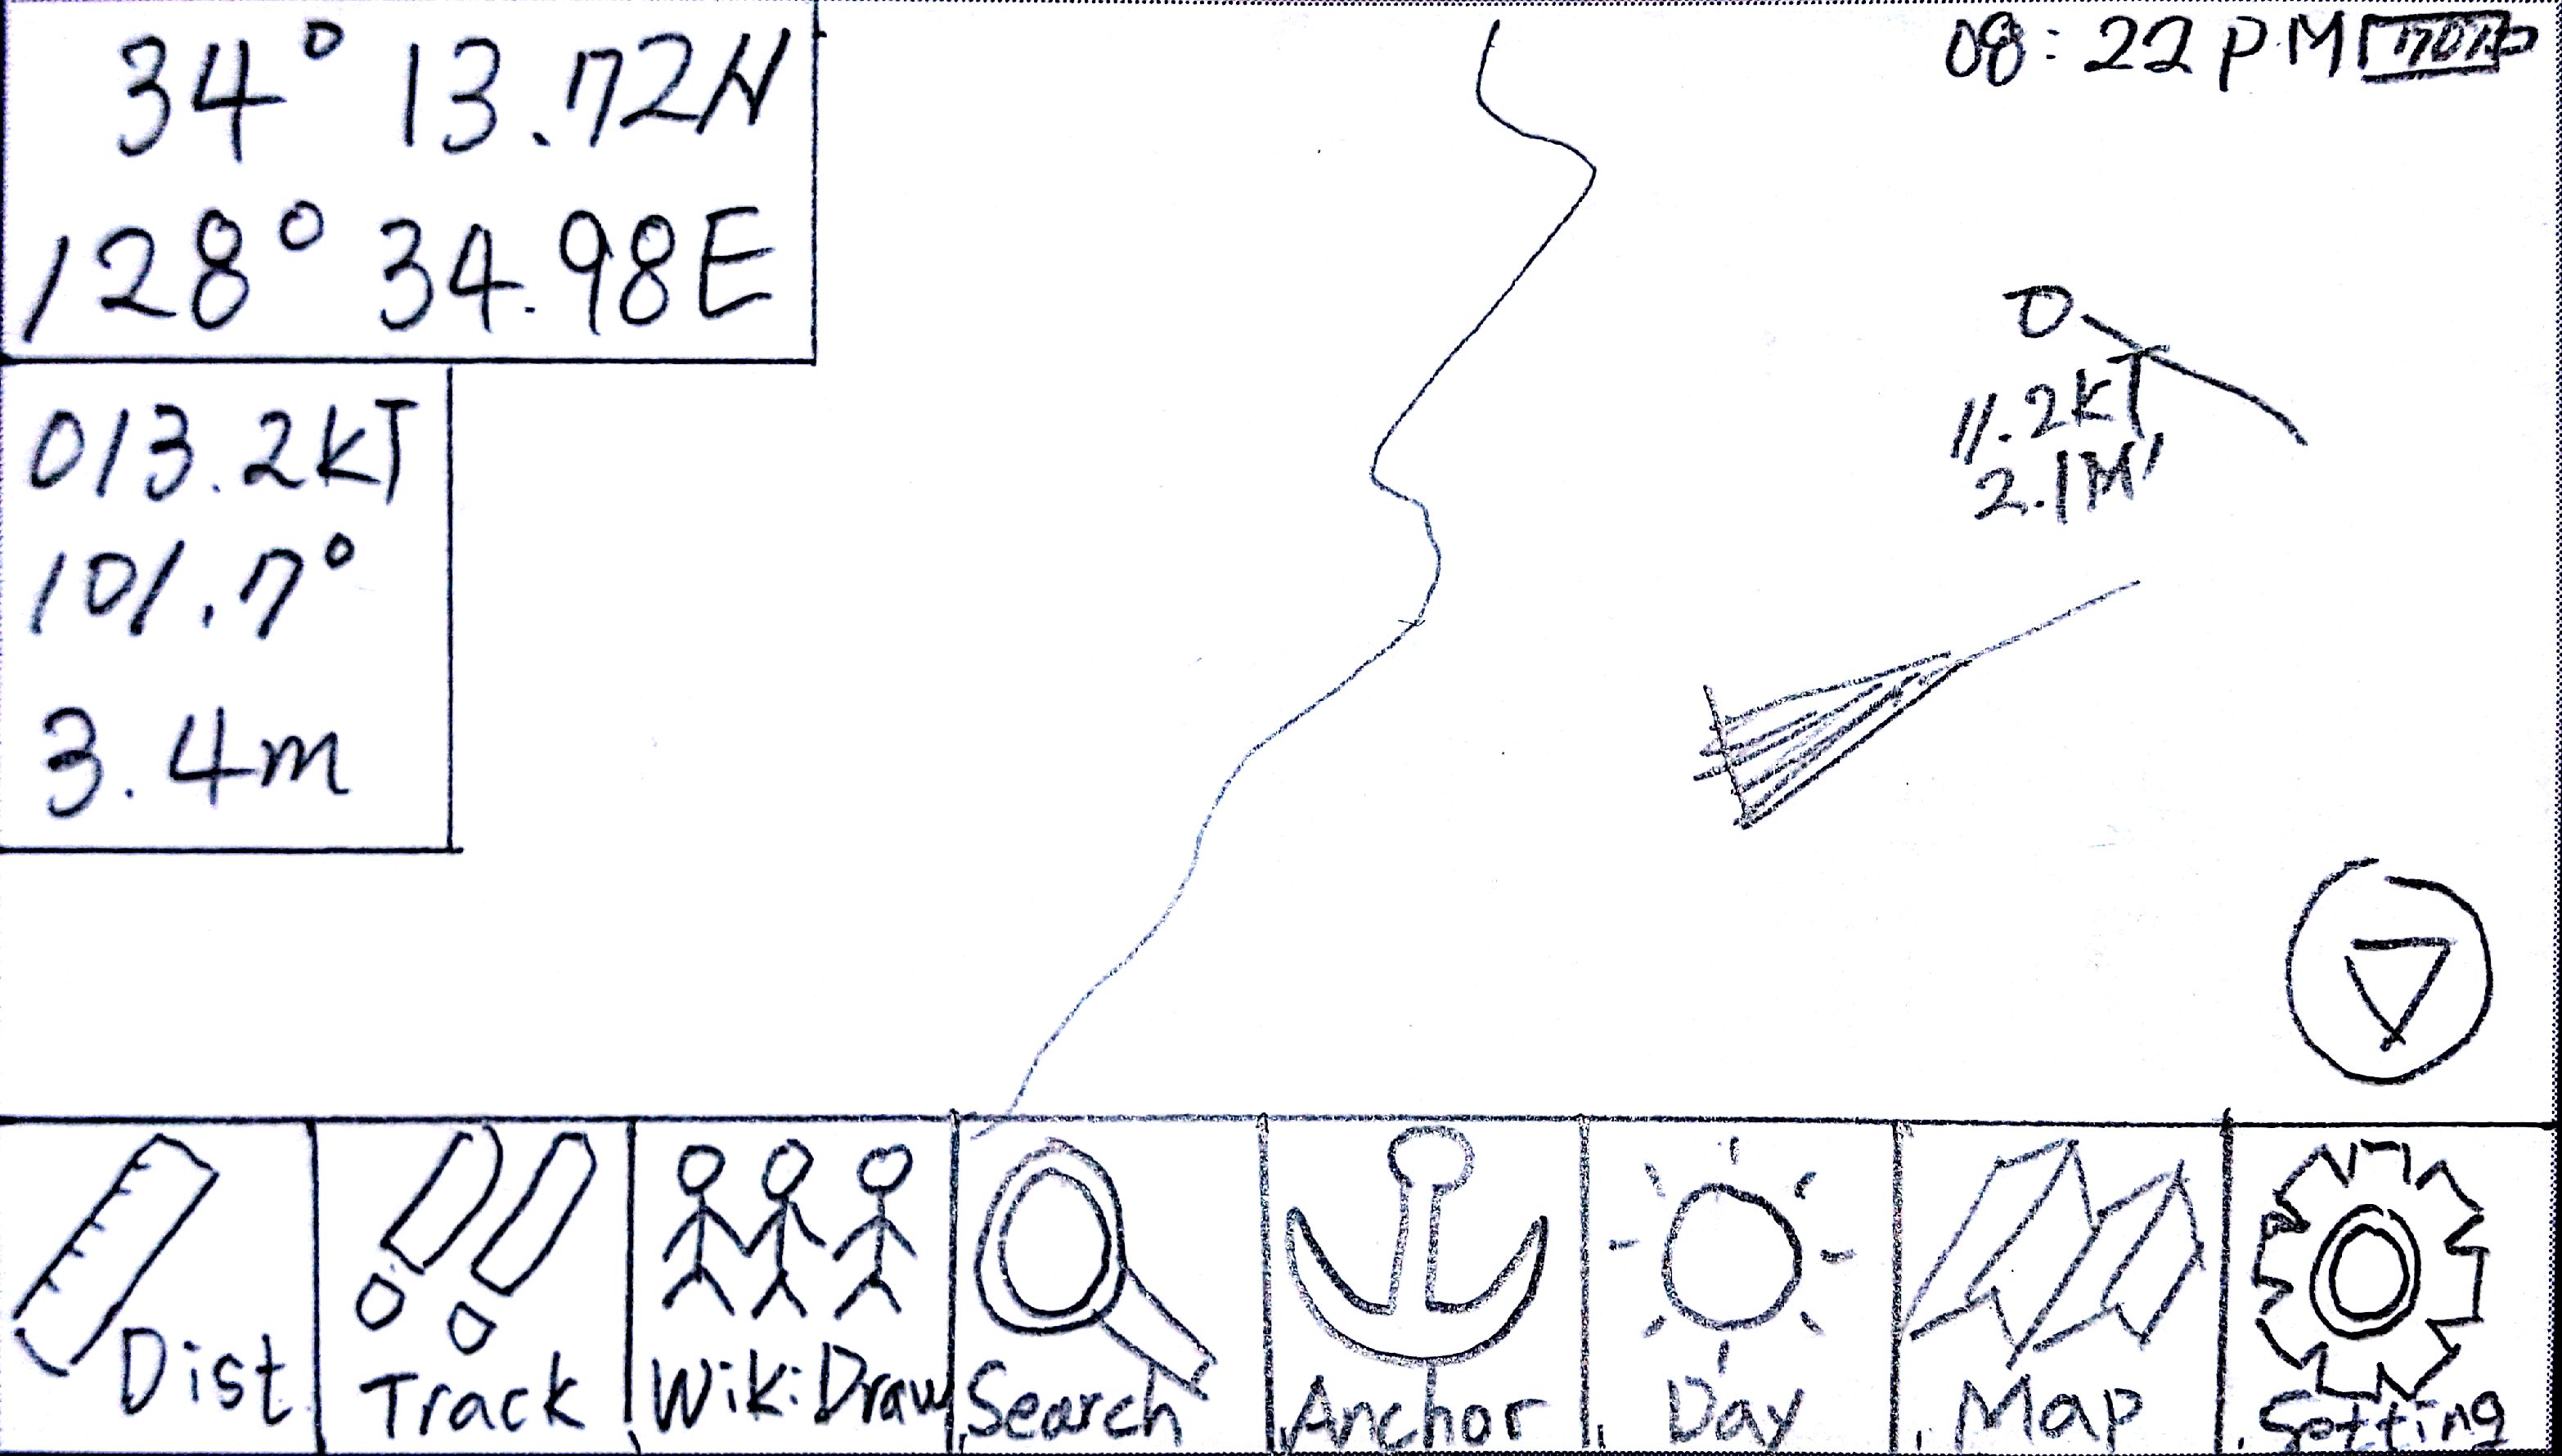 34° 13.72N
128° 34.98E
08:22PM
013.2KT
101.7°
3.4m
11.2KT
2.1M'
Dist
Track
Wiki:Draw
Search
Anchor
Day
Map
Setting